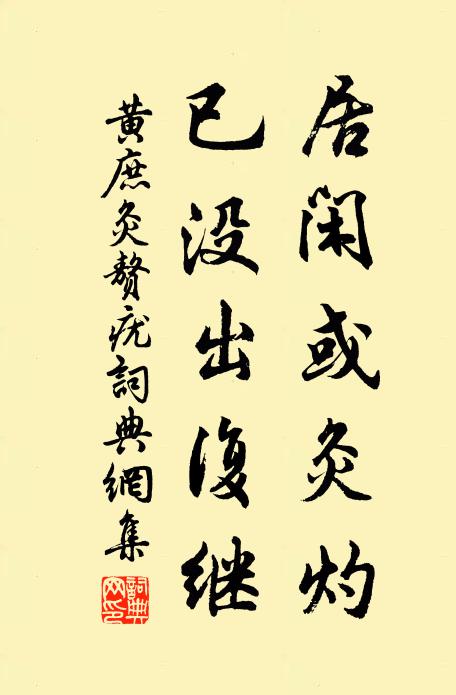 居闲或灸灼
已没出復继
黄庶灸赘疣詞典網集
詞典網印